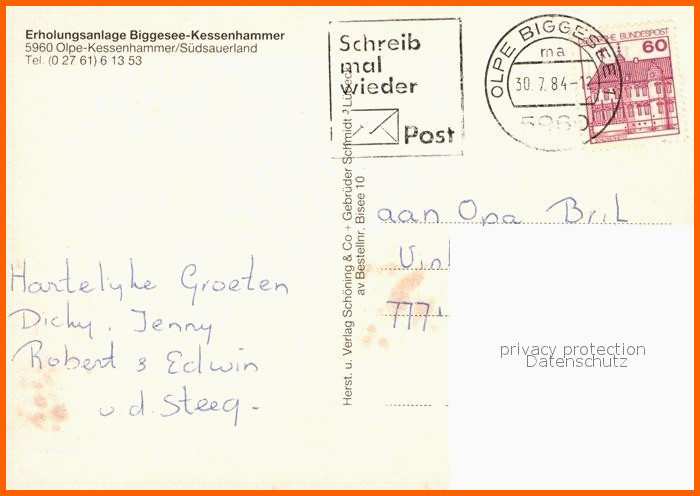 Erholungsanlage Biggesee-Kessenhammer
5960 Olpe-Kessenhammer/Südsauerland
Tel. (0 27 61) 6 13 53
Schreib
mal
wieder
Post
OLPE BIGGESEE 1
ma
30.7.84-12
5960
DEUTSCHE BUNDESPOST
60
Herst. u. Verlag Schöning & Co + Gebrüder Schmidt · Lübeck
av Bestellnr. Bisee 10
aan Opa Bril
777
Hartelijke Groeten
Dicky, Jenny
Robert & Edwin
v.d. Steeg.
privacy protection
Datenschutz